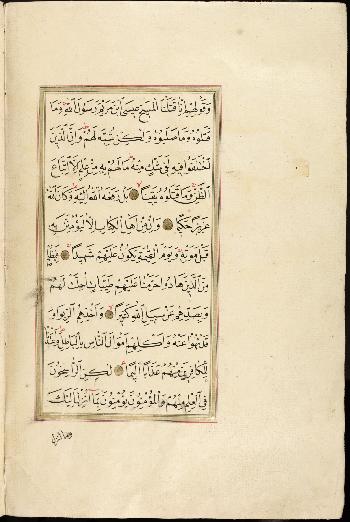 وَقَوْلِهِمْ اِنَّا قَتَلْنَا الْمَسِيحَ عِيسَى ابْنَ مَرْيَمَ رَسُولَ اللّٰهِ وَمَا
قَتَلُوهُ وَمَا صَلَبُوهُ وَلٰكِنْ شُبِّهَ لَهُمْ وَاِنَّ الَّذِينَ
اخْتَلَفُوا فِيهِ لَفِي شَكٍّ مِنْهُ مَا لَهُمْ بِهِ مِنْ عِلْمٍ اِلَّا اتِّبَاعَ
الظَّنِّ وَمَا قَتَلُوهُ يَقِينًا بَلْ رَفَعَهُ اللّٰهُ اِلَيْهِ وَكَانَ اللّٰهُ
عَزِيزًا حَكِيمًا وَاِنْ مِنْ اَهْلِ الْكِتَابِ اِلَّا لَيُؤْمِنَنَّ بِهِ
قَبْلَ مَوْتِهِ وَيَوْمَ الْقِيٰمَةِ يَكُونُ عَلَيْهِمْ شَهِيدًا فَبِظُلْمٍ
مِنَ الَّذِينَ هَادُوا حَرَّمْنَا عَلَيْهِمْ طَيِّبَاتٍ اُحِلَّتْ لَهُمْ
وَبِصَدِّهِمْ عَنْ سَبِيلِ اللّٰهِ كَثِيرًا وَاَخْذِهِمُ الرِّبٰوا وَ
قَدْ نُهُوا عَنْهُ وَاَكْلِهِمْ اَمْوَالَ النَّاسِ بِالْبَاطِلِ وَاَعْتَدْنَا
لِلْكَافِرِينَ مِنْهُمْ عَذَابًا اَلِيمًا لٰكِنِ الرَّاسِخُونَ
فِي الْعِلْمِ مِنْهُمْ وَالْمُؤْمِنُونَ يُؤْمِنُونَ بِمَا اُنْزِلَ اِلَيْكَ
وما انزل